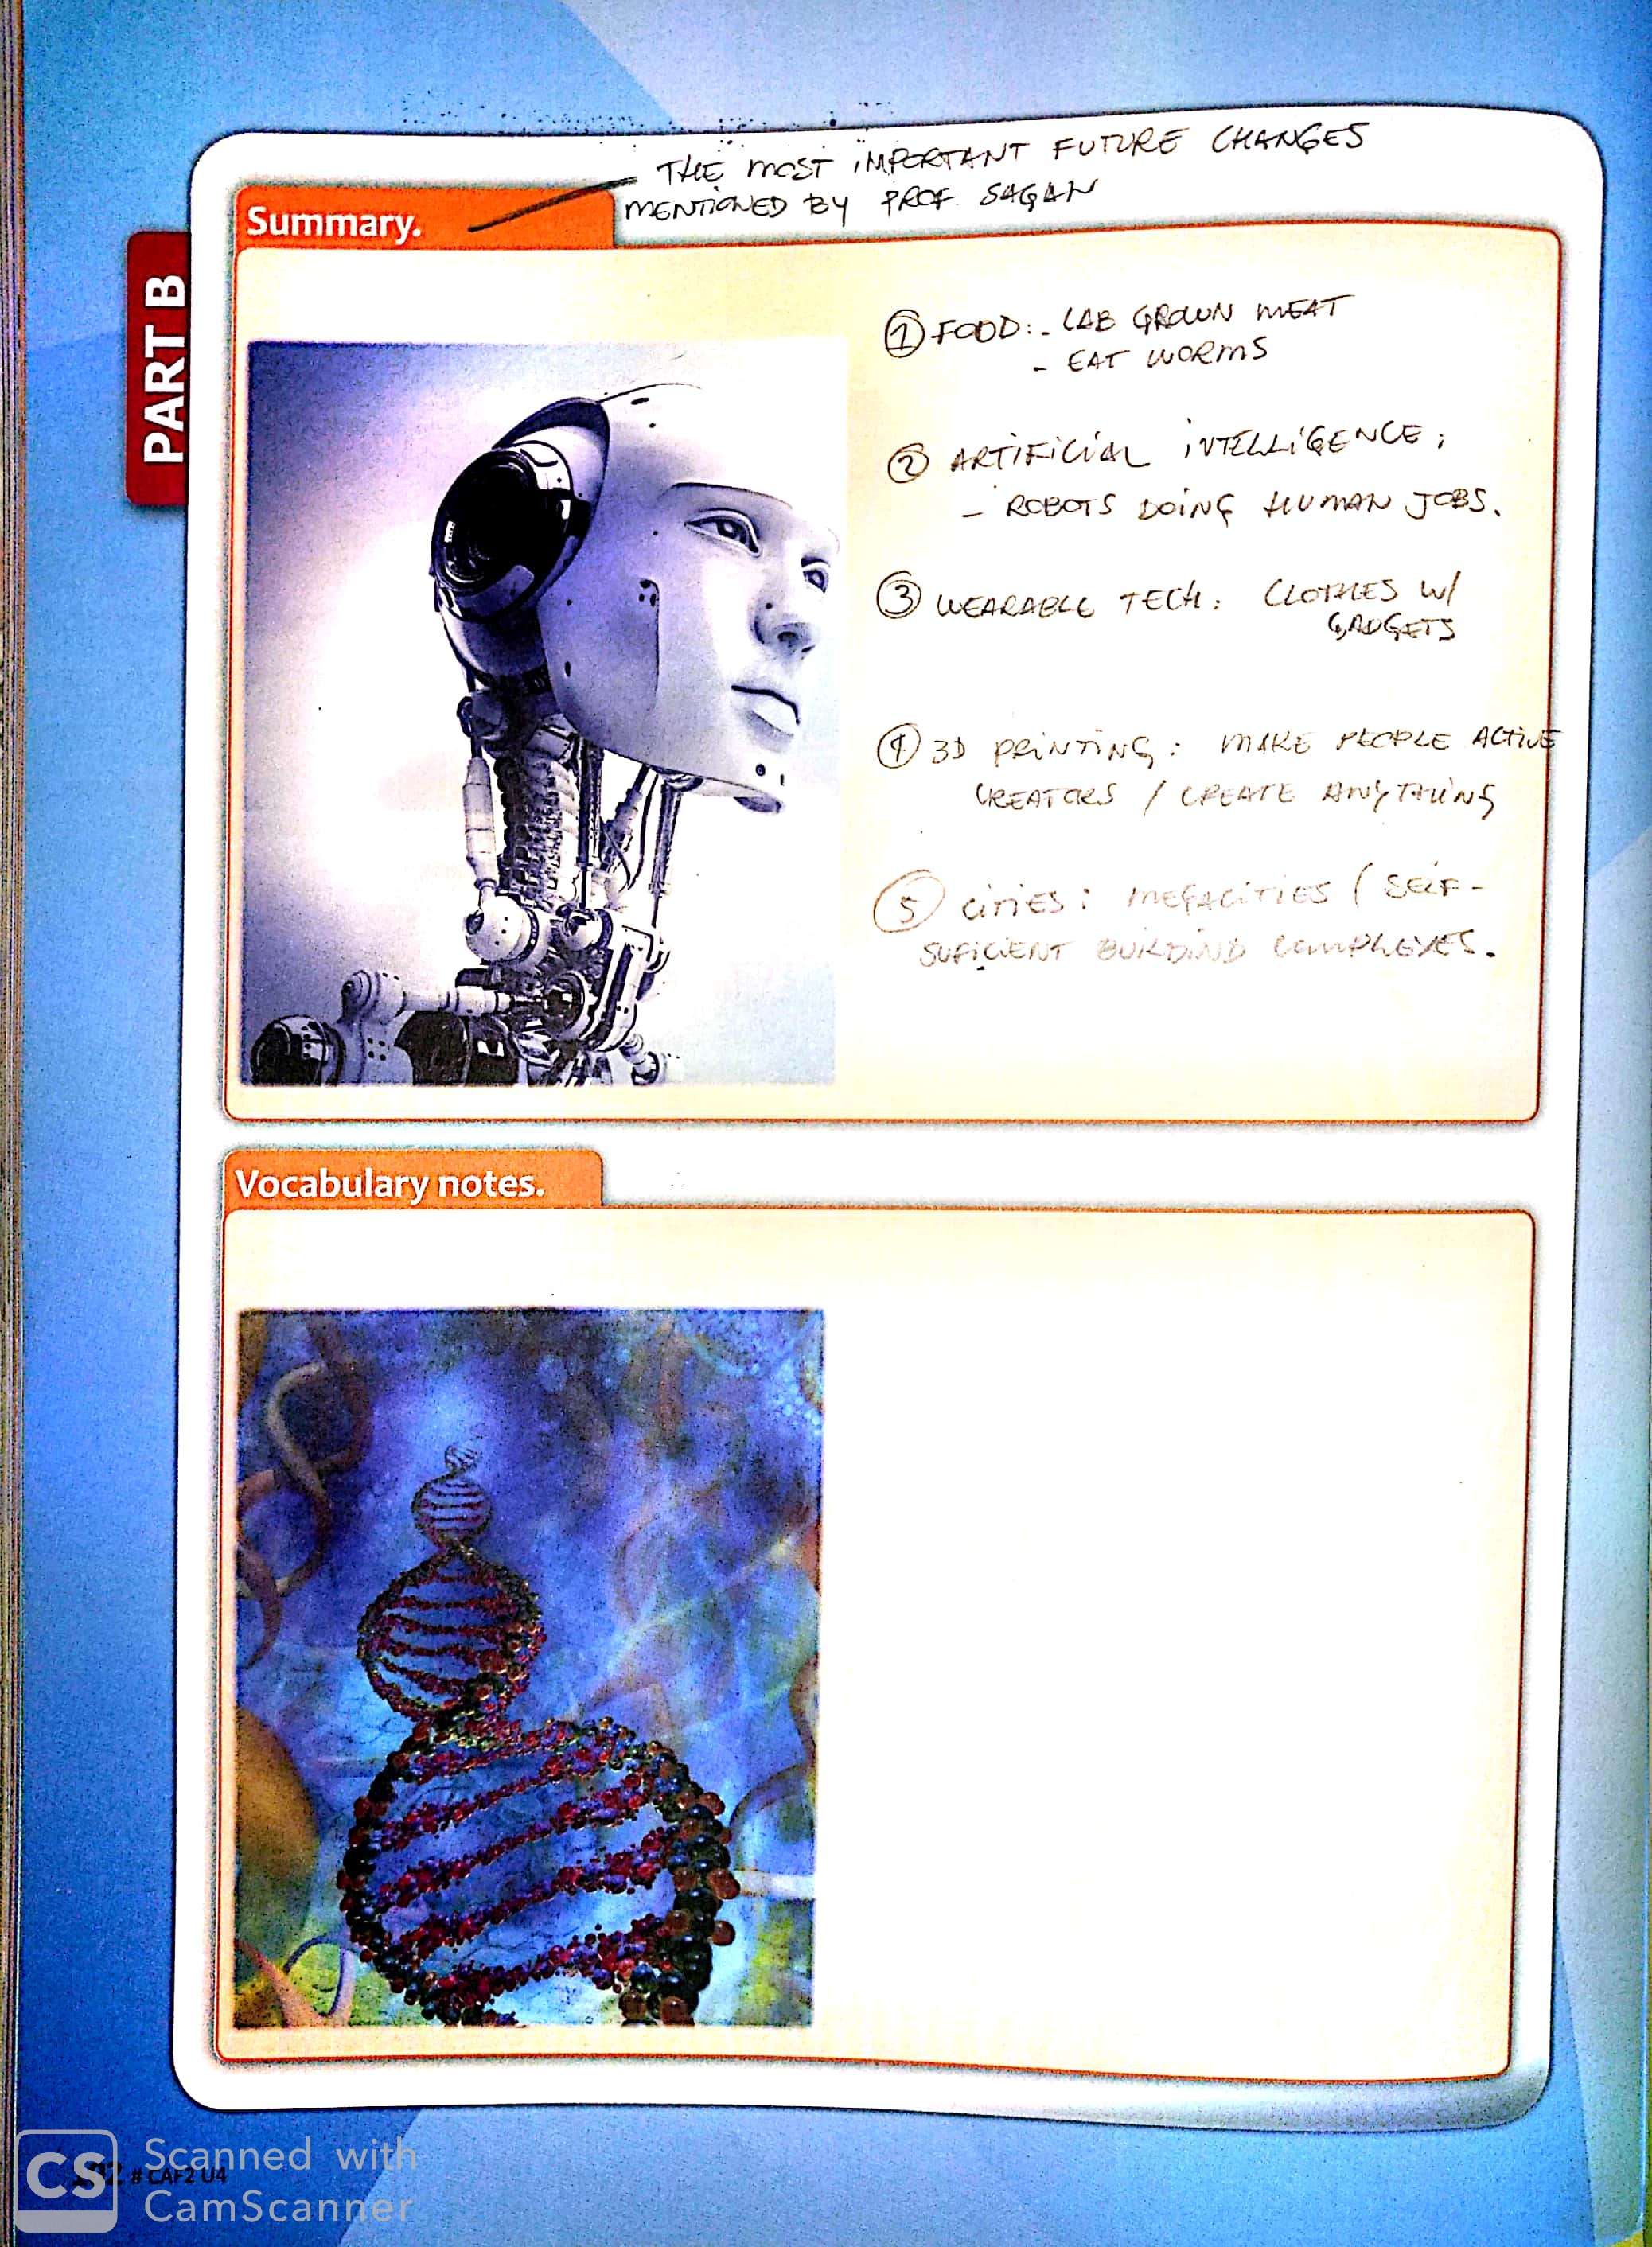 THE MOST IMPORTANT FUTURE CHANGES
MENTIONED BY PROF. SAGAN
Summary.
PART B
① FOOD: - LAB GROWN MEAT
- EAT WORMS
② ARTIFICIAL INTELLIGENCE:
- ROBOTS DOING HUMAN JOBS.
③ WEARABLE TECH: CLOTHES W/
GADGETS
④ 3D PRINTING: MAKE PEOPLE ACTIVE
CREATORS / CREATE ANYTHING
⑤ CITIES: MEGACITIES / SELF-
SUFICIENT BUILDIND COMPLEXES.
Vocabulary notes.
# CAF2 U4
CS Scanned with
CamScanner